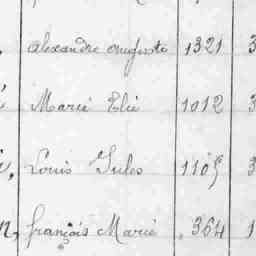 , alexandre auguste 1321 3
Marie Elie 1012 3
, Louis Jules 1105 3
n, françois Marie 364 1